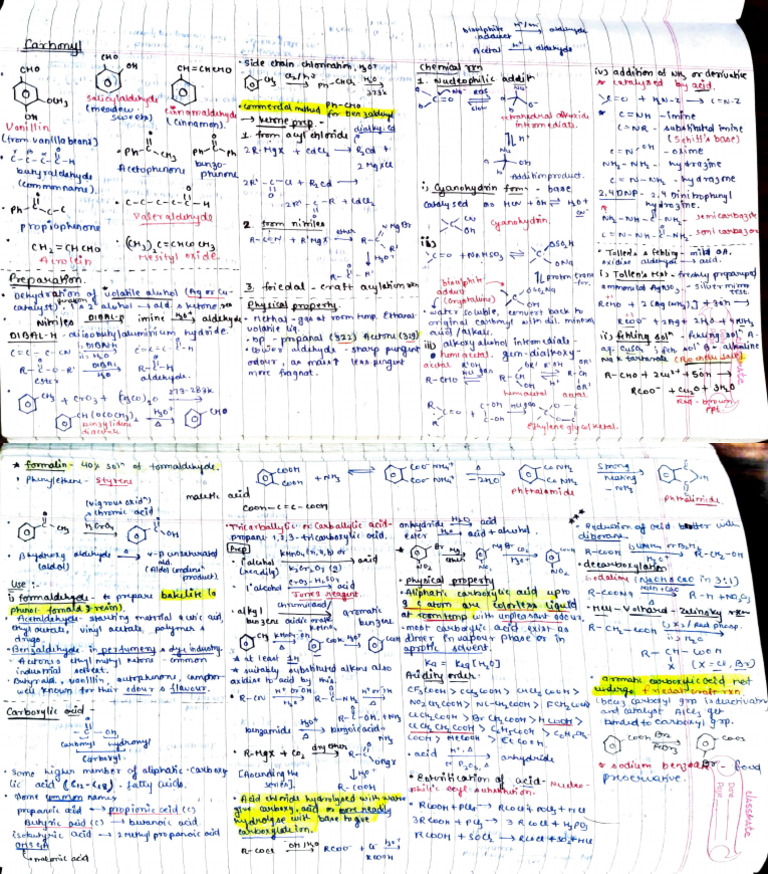 Carbonyl
CHO
CHO
OH
CH=CHCHO
OCH3
OH
Vanillin
(from vanilla beans)
salicylaldehyde
(meadow sweets)
cinnamaldehyde
(cinnamon)
C-C-C-C-H
butyraldehyde
(common name)
Ph-C-CH3
Acetophenone
Ph-C-Ph
benzo-
phenone
Ph-C-C-C
propiophenone
C-C-C-C-C-H
Valeraldehyde
CH2=CHCHO
Acrolein
(CH3)2C=CHCOCH3
Mesityl oxide
Preparation
Dehydration of volatile alcohol (Ag or Cu-
catalyst)
Nitriles DIBAL-H imine H3O+ aldehyde
DIBAL-H - diisobutylaluminium hydride.
ester
aldehyde
CH3 + CrO3 + (CH3CO)2O 273-283K
CH(OCOCH3)2 H3O+ CHO
benzylidene
diacetate
side chain chlorination, H3O+
CH3 Cl2/hv Ph-CHCl2 H2O 373K
Ph-CHO
commercial method for benzaldehyde
ketone prep.
1. from acyl chloride
2R-MgX + CdCl2 → R2Cd + 2MgXCl
2R'-C-Cl + R2Cd →
2R'-C-R + CdCl2
2. from nitriles
R-C≡N + R'MgX ether R-C
H3O+
R-C-R'
3. friedal-craft acylation
Physical property
Methal - gas at room temp. Ethanal-
volatile liq.
bp - propanal (322) Acetone (329)
lower aldehyde - sharp pungent
odour, as mass↑ less pungent
more fragnat.
Bisulphite adduct H+/OH- aldehyde
Acetal H+ aldehyde
Chemical rxn
1. Nucleophilic addition
tetrahedral alkoxide
intermediate
H+
Addition product.
i) Cyanohydrin form - base
catalysed
HCN + OH- ⇌ H2O + CN-
cyanohydrin.
ii)
C=O + NaHSO3 ⇌
bisulphite
adduct
(crystalline)
proton transfer.
water soluble, convert back to
original carbonyl with dil. mineral
acid/alkali.
iii) alkoxy alcohol intermediate-
hemiacetal gem-dialkoxy-
acetal
R-CHO
hemiacetal
acetal
ethylene glycol ketal.
iv) addition of NH3 or derivative
catalysed by acid.
C=O + H2N-Z → C=N-Z
C=NH - imine
C=NR - substituted imine
(Schiff's base)
C=N-OH - oxime
NH2-NH2 - hydrazine
C=N-NH2 - hydrazone
2,4 DNP - 2,4 Dinitrophenyl
hydrazine.
NH2-NH-C-NH2 - semicarbazide
C=N-NH-C-NH2 - semicarbazone
Tollen's & fehling - mild OA.
oxidise aldehyde → acid
i) Tollen's test - freshly prepared
ammonical AgNO3. - silver mirror
test.
RCHO + 2[Ag(NH3)2]+ + 3OH- →
RCOO- + 2Ag + 2H2O + 4NH3
ii) fehling soln - fehling soln A-
aq. CuSO4 & feh soln B - alkaline
Na K tartarate (Rochelle salt)
R-CHO + 2Cu2+ + 5OH- →
RCOO- + Cu2O + 3H2O
Red-brown
ppt
formalin - 40% soln of formaldehyde.
Phenylethene - styrene
maleic acid
COOH-C=C-COOH
COOH
COOH
+ NH3 ⇌
COO-NH4+
COO-NH4+
-2H2O
CONH2
CONH2
phthalamide
Strong heating
-NH3
phthalimide
(vigrous oxidn)
chromic acid
H2CrO4
β-hydroxy aldehyde → α-β unsaturated
(aldol)
ald.
(Aldol condens-
product)
Use :-
i) formaldehyde - to prepare bakelite (a
phenol-formald. resin).
Acetaldehyde - starting material of acetic acid,
ethyl acetate, vinyl acetate, polymer &
drugs.
Benzaldehyde in perfumery & dye industry.
Acetone & ethyl methyl ketone - common
industrial solvent.
Butyrald., vanillin, acetophenone, camphor-
well known for their odour & flavour.
Carboxylic acid -
carbonyl hydroxyl
Carboxyl
Some higher number of aliphatic-carboxy-
lic acid (C12-C18) - fatty acids.
Some common names
propanoic acid → propionic acid (C)
Butyric acid (C) → butanoic acid
isobutyric acid → 2 Methylpropanoic acid
malonic acid
Tricarballylic or carballylic acid-
propane 1,2,3-tricarboxylic acid.
Prep
1° alcohol
(readily)
KMnO4 (N, A, B) or
K2Cr2O7 (A)
acid
1° alcohol CrO3-H2SO4 acid
Jones reagent.
chromic acid/
alkyl
benzene acidic or alk
KMnO4
aromatic
benzene
CH3 KMnO4-OH COOK H3O+ COOH
at least 1H
suitably substituted alkene also
oxidise to acid by this.
R-CN H+ or OH- R-C-NH2 H+ or OH-
R-C-OH + NH3
benzamide H3O+ benzoic acid-
R-MgX + CO2 dry ether
H3O+
R-COOH
Acid chloride hydrolysed with water
give carboxy. acid or more readily
hydrolyse with base to give
carboxylate ion.
R-COCl OH-/H2O RCOO- + Cl- H3O+ RCOOH
anhydride H2O acid
ester H3O+ acid + alcohol.
Br
Mg
ether
MgBr
CO2
COOH
NO2
physical property
Aliphatic carboxylic acid upto
9 C atom are colorless liquid
at room temp with unpleasant odour.
most carboxylic acid exist as
dimer in vapour phase or in
aprotic solvent.
Ka = Keq [H2O]
Acidity order:-
CF3COOH > CCl3COOH > CHCl2COOH >
NO2CH2COOH > NC-CH2COOH > FCH2COOH
ClCH2COOH > BrCH2COOH > HCOOH >
ClCH2CH2COOH > C6H5COOH > C6H5CH2
COOH > MeCOOH > EtCOOH.
acid H+, Δ anhydride
or P2O5
Esterification of acid - Nucleo-
philic acyl substitution.
RCOOH + PCl5 → RCOCl + POCl3 + HCl
3RCOOH + PCl3 → 3RCOCl + H3PO3
RCOOH + SOCl2 → RCOCl + SO2 + HCl
Reduction of acid better with
diborane
R-COOH LiAlH4 or B2H6 R-CH2-OH
H3O+
decarboxylation
Sodalime (NaOH & CaO in 3:1)
R-COONa NaOH + CaO R-H + Na2CO3
Hell-Volhard-Zelinsky rxn
R-CH2-COOH i) X2/Red phosp.
ii) H2O
R-CH-COOH
X
(X = Cl, Br)
aromatic carboxylic acid not
undergo friedal craft rxn
(becz carboxyl grp is deactivating
and catalyst AlCl3 get
bonded to carboxyl grp.
COOH Br2
FeBr3
COOH
Br
sodium benzoate - food
preservative.
classmate
Date
Page